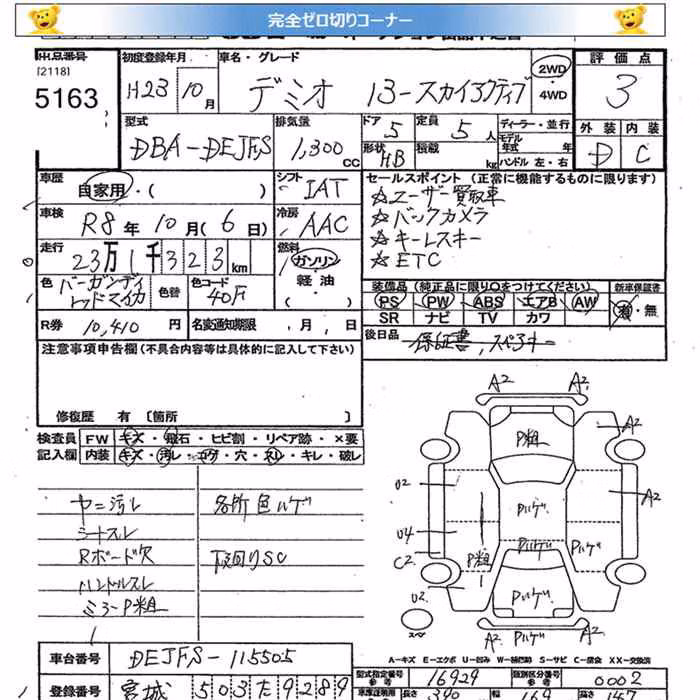 完全ゼロ切りコーナー
出品番号
[2118]
5163
初度登録年月
H23 10月
車名・グレード
デミオ 13-スカイアクティブ
2WD
・
4WD
評価点
3
外装 内装
D C
型式
DBA-DEJFS
排気量
1,300 CC
ドア 5
定員 5 人
形状 HB
積載 kg
ディーラー・並行
モデル
年式 年
ハンドル 左・右
車歴
自家用・( )
シフト
IAT
車検
R8年 10月( 6日)
冷房
AAC
走行
23万1千323km
燃料
ガソリン
・
軽油
・( )
色
バーガンディ
レッドマイカ
色替
色コード
40F
R券 10,410 円
名変通知期限 月 日
セールスポイント (正常に機能するものに限ります)
☆ユーザー買取車
☆バックカメラ
☆キーレスキー
☆ETC
装備品(純正品に限り○をつけてください) 新車保証書
PS PW ABS エアB AW
SR ナビ TV カワ
・無
後日品 保証書,スペアキー
注意事項申告欄(不具合内容等は具体的に記入して下さい)
修復歴 有 [箇所
検査員 FW キズ・飛石・ヒビ割・リペア跡・×要
記入欄 内装 キズ・汚れ・コゲ・穴・スレ・キレ・破レ
ヤニ汚レ
シートスレ
Rボード欠
ハンドルスレ
ミラーP粗
各所色ハゲ
下回りSC
A2 A2
P粗
A2
U2
A2
Pハゲ
U4
C2
Pハゲ
Pハゲ
P粗
U2
Pハゲ
スペア
A2 Pハゲ A2
A-キズ E-エコボ U-凹ミ W-補修跡 S-サビ C-腐食 XX-交換済
車台番号 DEJFS-115505
型式指定番号
参考
16929
類別区分番号
参考
0002
登録番号 宮城 503た9289